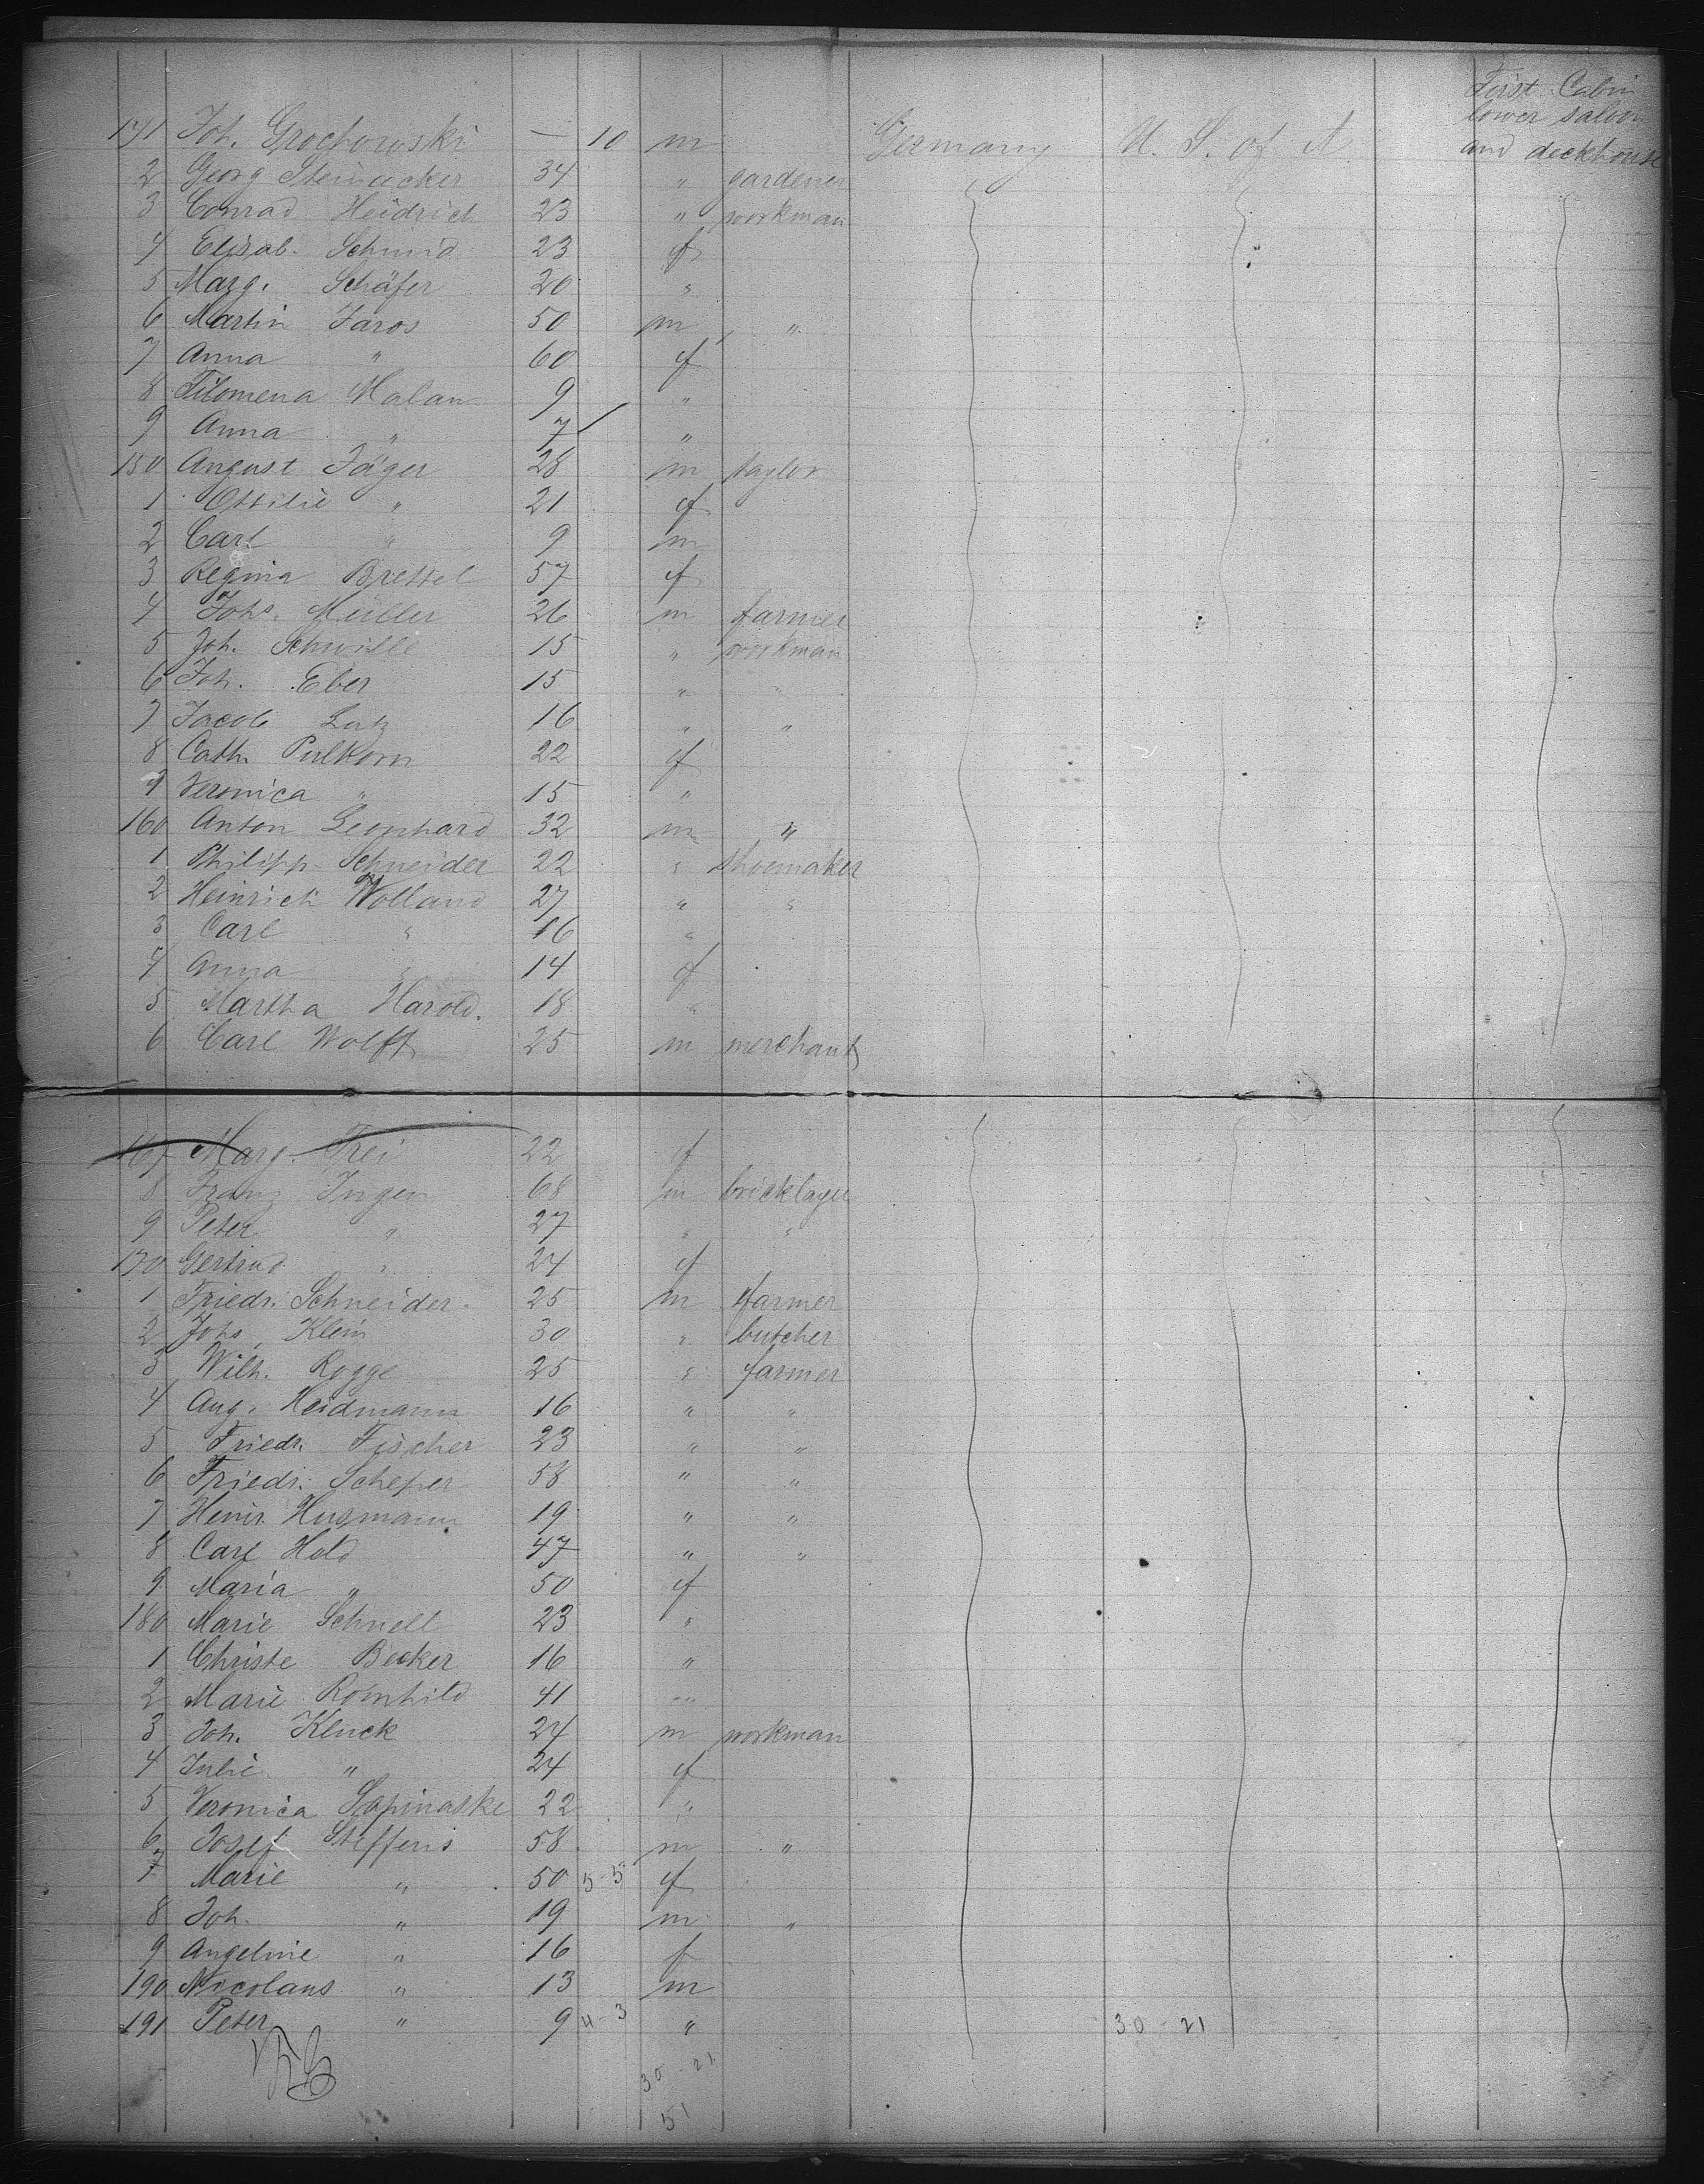 First Cabin
lower saloon
and deckhouse
141 Joh. Grochowski — 10 m Germany U. S. of A
2 Georg Steinacker 34 " gardener
3 Conrad Heidrich 23 " workman
4 Elisab. Schmid 23 f
5 Marg. Schäfer 20 "
6 Martin Jaros 50 m "
7 Anna " 60 f
8 Filomena Malan 9 "
9 Anna " 7 "
150 August Jäger 28 m taylor
1 Ottilie " 21 f
2 Carl " 9 m
3 Regina Brettel 57 f
4 Johs. Müller 26 m farmer
5 Joh. Schwille 15 " workman
6 Joh. Eber 15 " "
7 Jacob Latz 16 " "
8 Cath. Pulkorn 22 f
9 Veronica " 15 "
160 Anton Leonhard 32 m "
1 Philipp Schneider 22 " shoemaker
2 Heinrich Wolland 27 " "
3 Carl " 16 "
4 Anna " 14 f
5 Martha Harold. 18 "
6 Carl Wolff 25 m merchant
167 Marg. Frei 22 f
8 Franz Ingen 68 m bricklayer
9 Peter " 27 " "
170 Gertrud " 24 f
1 Friedr. Schneider 25 m farmer
2 Johs. Klein 30 " butcher
3 Wilh. Rogge 25 " farmer
4 Aug. Heidmann 16 " "
5 Friedr. Fischer 23 " "
6 Friedr. Scheper 58 " "
7 Heinr. Husmann 19 " "
8 Carl Held 47 " "
9 Maria " 50 f
180 Marie Schnell 23 "
1 Christe Becker 16 "
2 Marie Römhild 41 "
3 Joh. Kluck 24 m workman
4 Julie " 24 f
5 Veronica Lapinaske 22 "
6 Josef Steffens 58 m "
7 Marie " 50 5-5 f
8 Joh. " 19 m "
9 Angeline " 16 f
190 Nicolaus " 13 m
191 Peter " 9 4-3 " 30-21
30-21
51